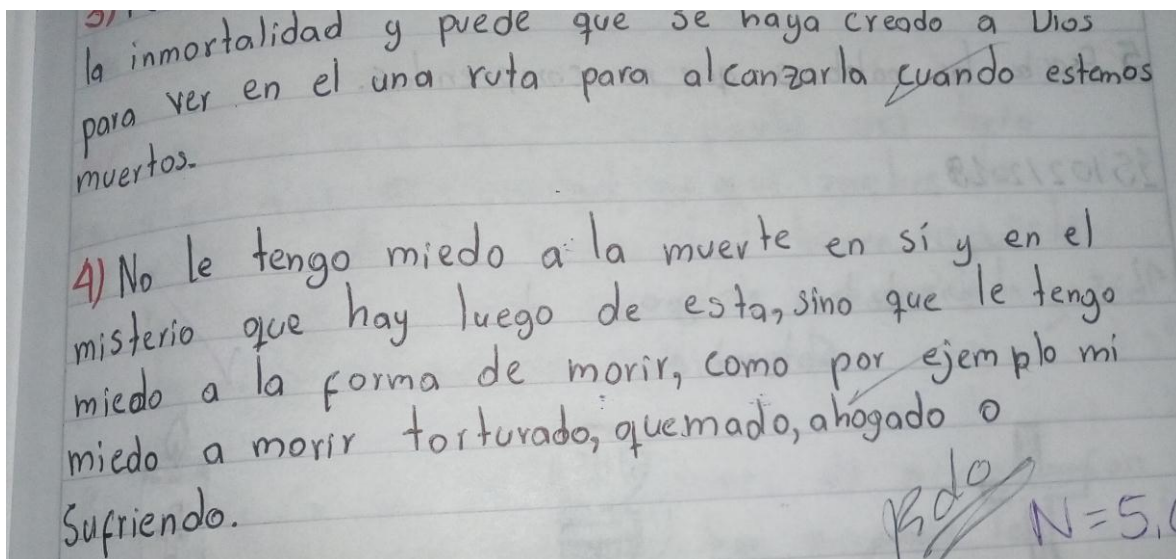 la inmortalidad y puede que se haya creado a Dios
para ver en el una ruta para alcanzarla cuando estemos
muertos.
4) No le tengo miedo a la muerte en sí y en el
misterio que hay luego de esta, sino que le tengo
miedo a la forma de morir, como por ejemplo mi
miedo a morir torturado, quemado, ahogado o
sufriendo.
Rdo N=5,